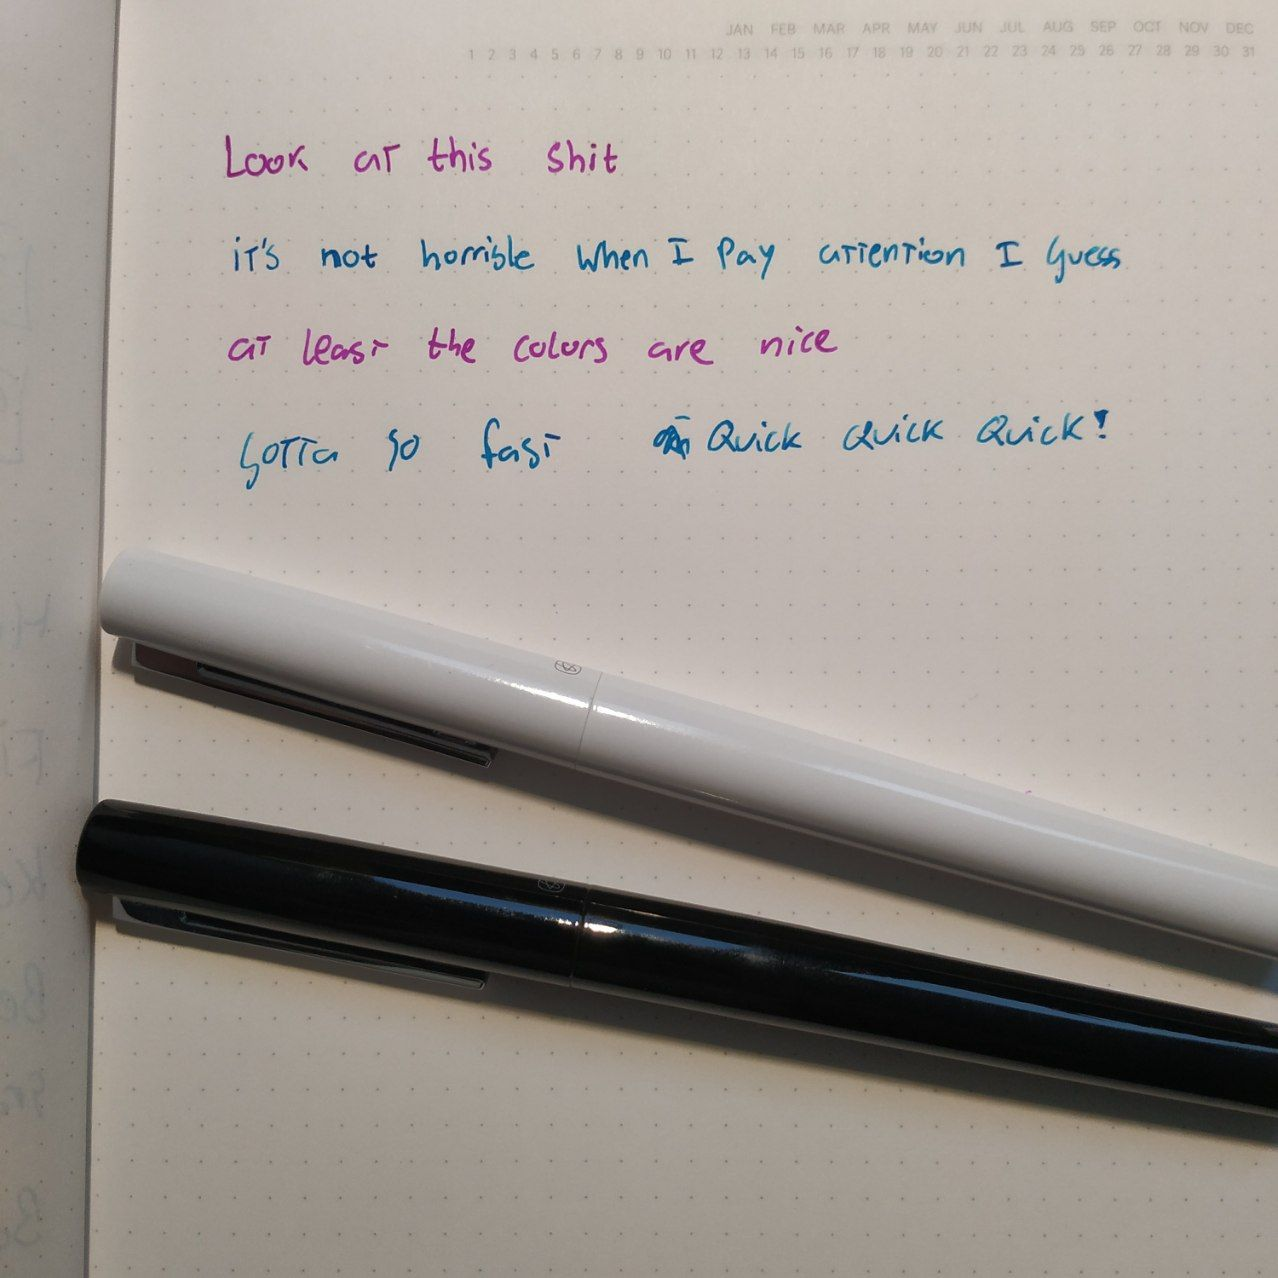 JAN FEB MAR APR MAY JUN JUL AUG SEP OCT NOV DEC
1 2 3 4 5 6 7 8 9 10 11 12 13 14 15 16 17 18 19 20 21 22 23 24 25 26 27 28 29 30 31
Look at this shit
it's not horrible when I Pay attention I Guess
at least the colors are nice
Gotta go fast Quick Quick Quick!